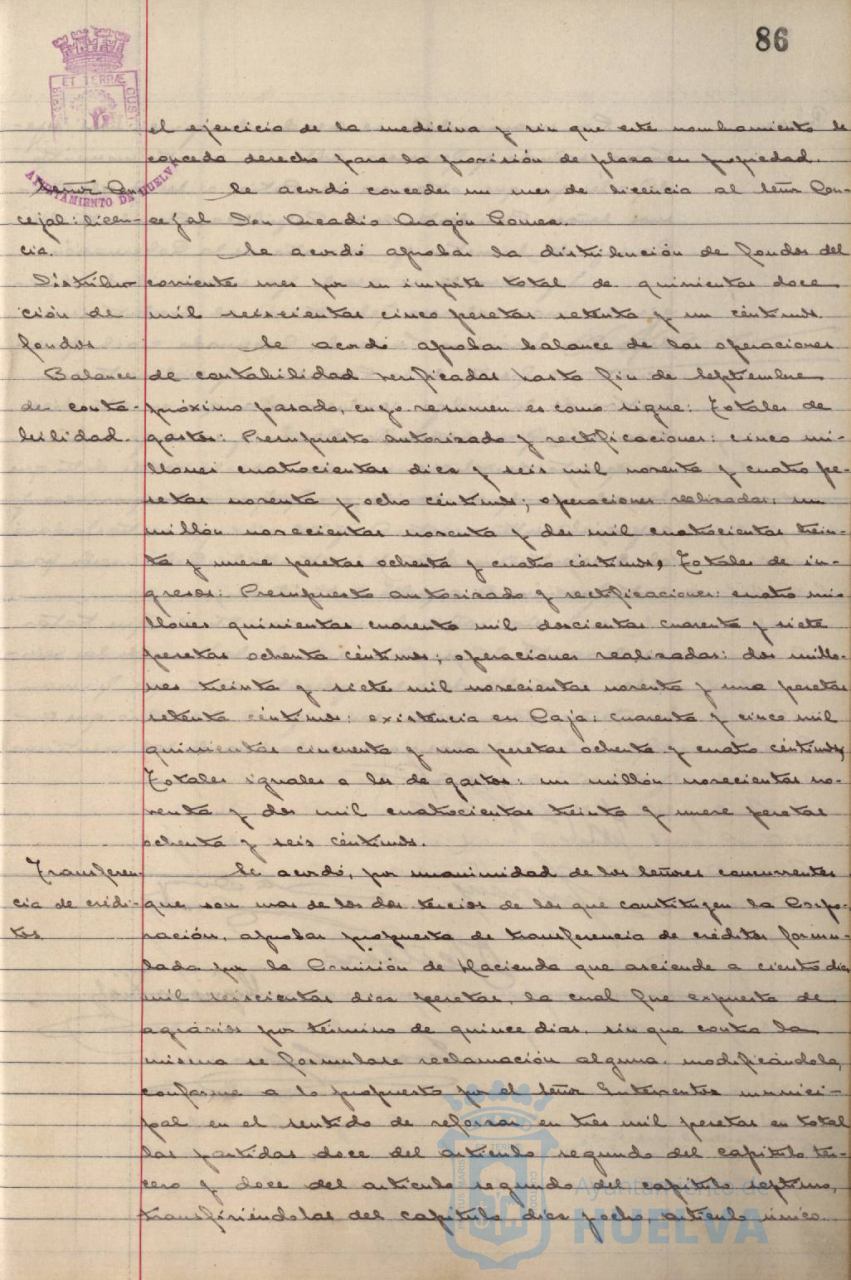 86
ET TERRAE
AYUNTAMIENTO DE HUELVA
el ejercicio de la medicina y sin que este nombramiento le
conceda derecho para la provisión de plaza en propiedad.
Señor Con-
cejal: licen-
cia.
Se acordó conceder un mes de licencia al Señor Con-
cejal Don Arcadio Aragón Gomez.
Distribu-
ción de
fondos
Se acordó aprobar la distribución de fondos del
corriente mes por su importe total de quinientas doce
mil seiscientas cinco pesetas setenta y un céntimos.
Balance
de conta-
bilidad.
Se acordó aprobar balance de las operaciones
de contabilidad verificadas hasta fin de Septiembre
próximo pasado, cuyo resumen es como sigue: Totales de
gastos: Presupuesto autorizado y rectificaciones: cinco mi-
llones cuatrocientas diez y seis mil noventa y cuatro pe-
setas noventa y ocho céntimos; operaciones realizadas: un
millón novecientas noventa y dos mil cuatrocientas trein-
ta y nueve pesetas ochenta y cuatro céntimos, Totales de in-
gresos: Presupuesto autorizado y rectificaciones: cuatro mi-
llones quinientas cuarenta mil doscientas cuarenta y siete
pesetas ochenta céntimos; operaciones realizadas: dos millo-
nes treinta y siete mil novecientas noventa y una pesetas
setenta céntimos: existencia en Caja: cuarenta y cinco mil
quinientas cincuenta y una pesetas ochenta y cuatro céntimos,
Totales iguales a los de gastos: un millón novecientas no-
venta y dos mil cuatrocientas treinta y nueve pesetas
ochenta y seis céntimos.
Transferen-
cia de crédi-
tos.
Se acordó, por unanimidad de los Señores concurrentes
que son mas de los dos tercios de los que constituyen la Corpo-
ración, aprobar propuesta de transferencia de créditos formu-
lada por la Comisión de Hacienda que asciende a ciento diez
mil seiscientas diez pesetas, la cual fue expuesta de
agrários por término de quince dias, sin que contra la
misma se formulase reclamación alguna, modificándola,
conforme a lo propuesto por el Señor Interventor munici-
pal en el sentido de reforzar en tres mil pesetas en total
las partidas doce del artículo segundo del capítulo ter-
cero y doce del artículo segundo del capítulo septimo,
transfiriéndolas del capítulo diez y ocho, artículo único.
Ayuntamiento de
HUELVA